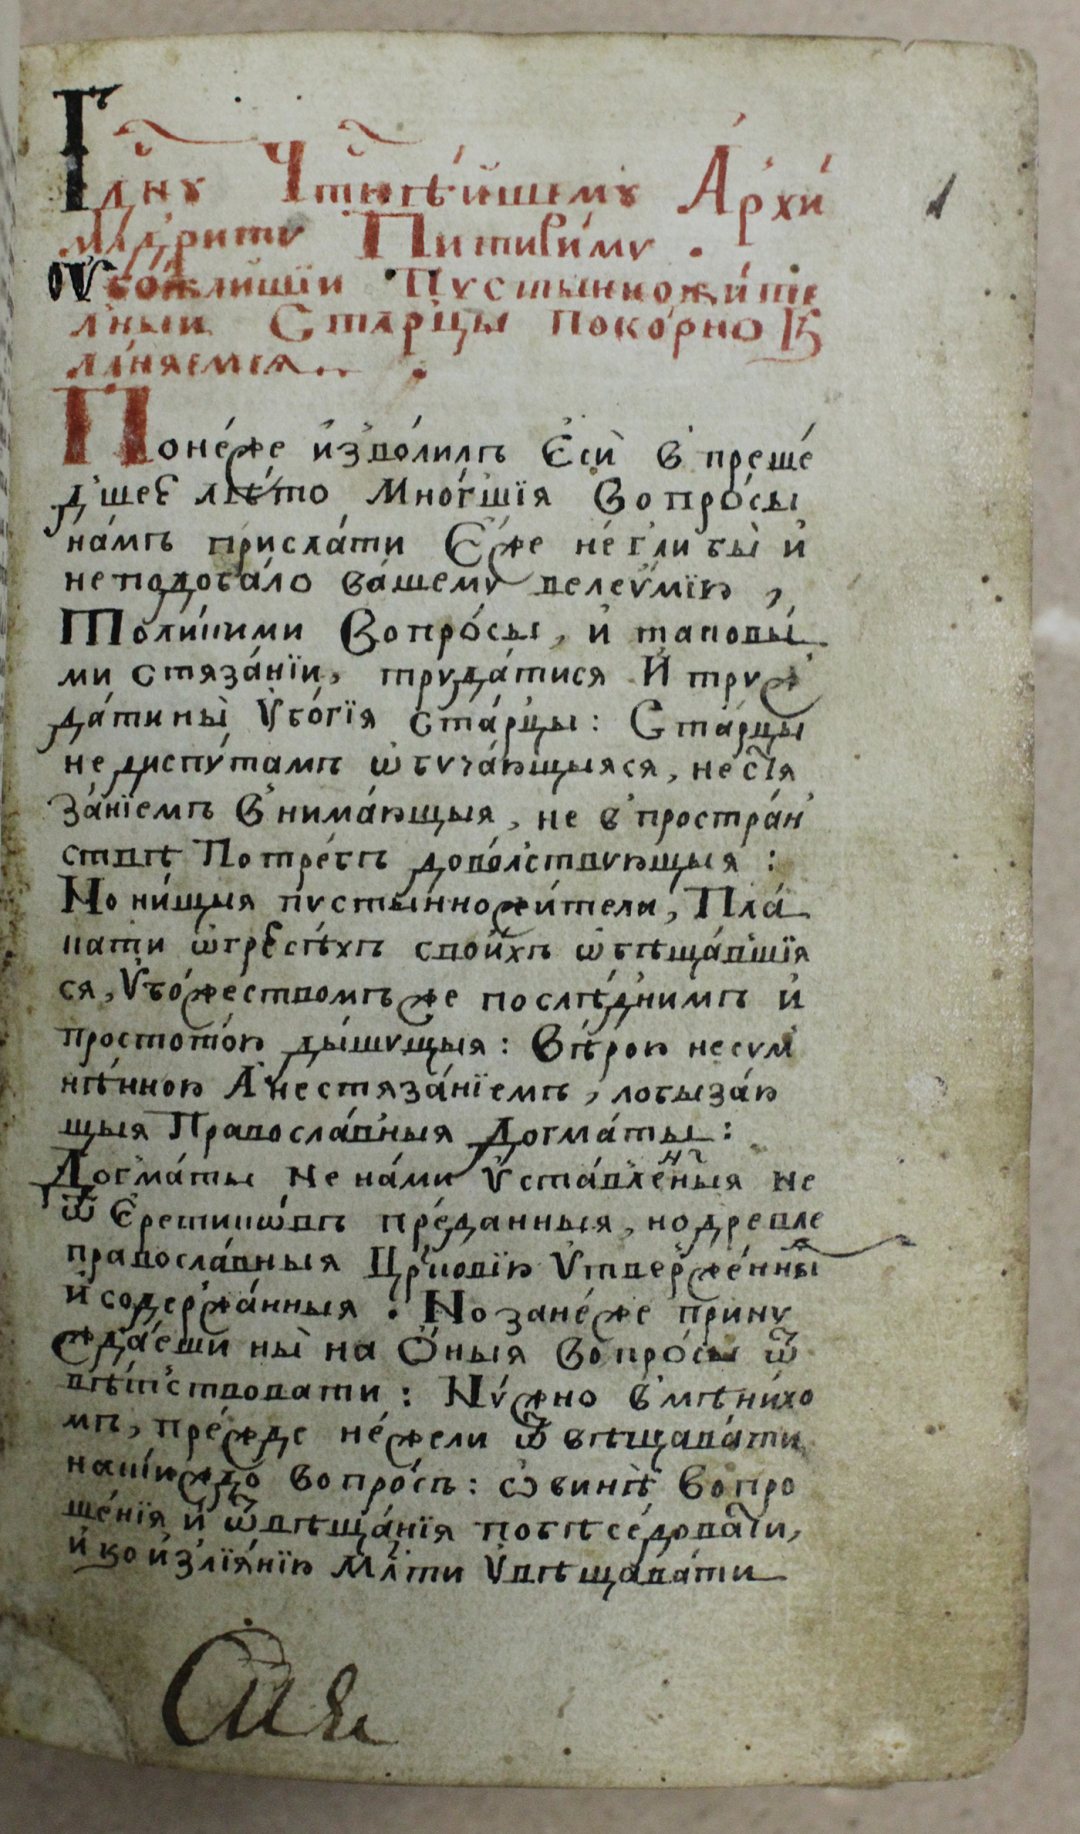 Гдну Чтнѣ́йшему А́рхи́
мандриту Питири́му .
Оубо́жлишїи Пусты́нножи́те
лныи Ста́рцы поко́рно К
ла́няемся..
1
Поне́же и҆зво́лилъ Є҆си̇̀ в преше́
дшеє лѣ́то Мно́гшїя Вопро́сы
на́мъ присла́ти Є҆́же не́гли бы̀ и҆
неподоба́ло ва́шему велеѹ́мїю ,
Толи́кими Вопро́сы, и҆ таковы́
ми стяза́нїи, труда́тися И҆ труж
да́ти ны̀ Ѹ҆бо́гїя ста́рцы : Ста́рцы
не диспу́тамъ ѡ҆буча́ющыяся, не стя
за́нїемъ внима́ющыя, не в простра́н
ствѣ Потре́бъ дово́лствующыя :
Но ни́щыя пусты́нножи́тели, Пла́
кати ѡ҆ грєсѣ́хъ свои́хъ ѡ҆бѣща́вшїя
ся, Ѹ҆бо́жествомъ же послѣ́днимъ и҆
простото́ю ды́шущыя : Вѣ́рою несум
нѣ́нною А҆ не стяза́нїемъ, лобыза́ю
щыя Правосла́вныя Догма́ты :
Догма́ты не на́ми ѹ҆ста́вле́нныя не
ѿ Є҆ретикѡ́въ пре́данныя, но древле
правосла́вныя Цр҃ковїю Ѹ҆тверже́нны
и҆ содержа́нныя . Но зане́же прину
жда́еши ны̀ на Ѻ҆́ныя вопро́сы ѿ
вѣ́тствовати : Ну́жно вмѣни́хо
мъ, пре́жде не́жели ѿвѣщава́ти
на кі́йждо вопро́съ : ѡ҆ винѣ̀ вопро
ше́нїя и҆ ѿвѣща́нїя побѣсе́довати,
и҆ ко и҆злїя́нїю Млⷭ҇ти Ѹ҆вѣщава́ти